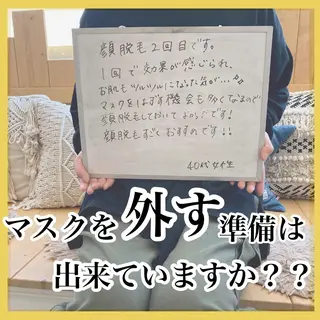 顔脱毛2回目です。
1回で効果が感じられ、
お肌もツルツルになった気が…♪♪
マスクをはずす機会も多くなるので
顔脱毛しておいてよかったです!
顔脱毛すごくおすすめです!!
40代女性
マスクを外す準備は
出来ていますか??